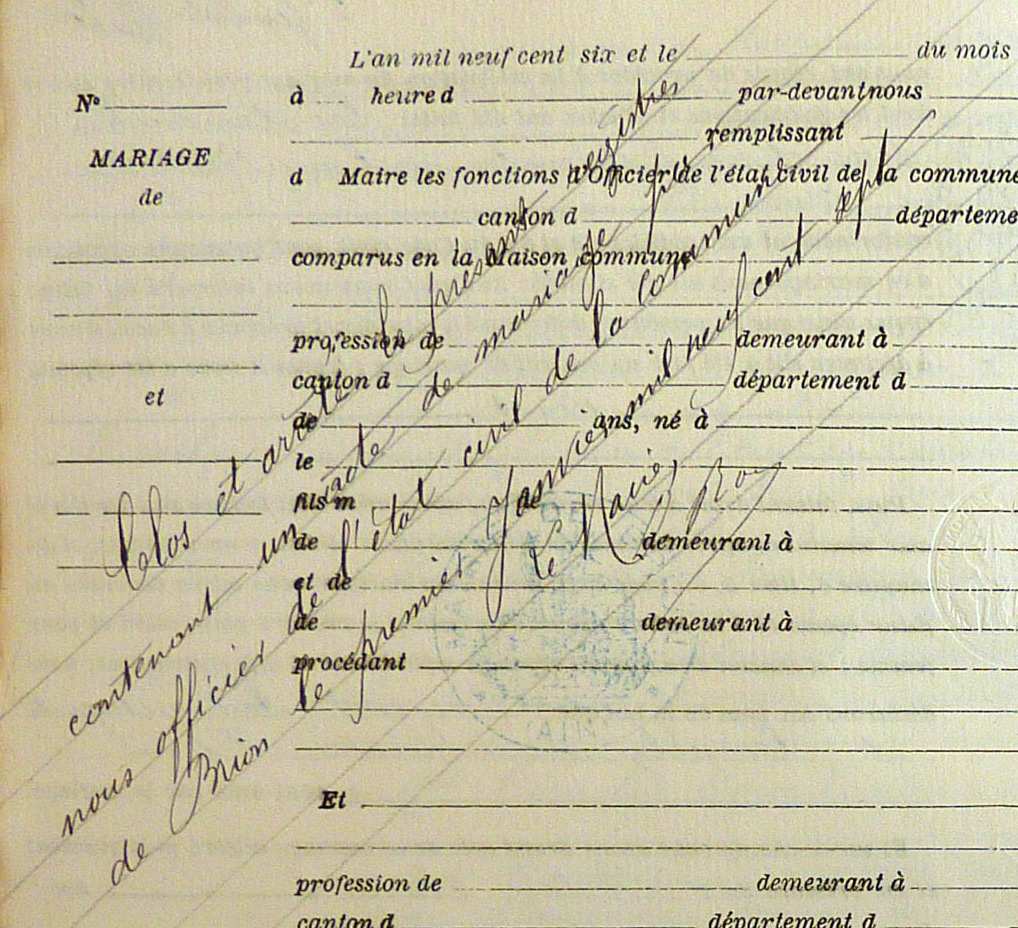 L'an mil neuf cent six et le du mois
N°
à heure d par-devant nous
remplissant
MARIAGE
de
d Maire les fonctions d'Officier de l'état civil de la commune
canton d départeme
comparus en la Maison commune
profession de demeurant à
canton d département d
et
de ans, né à
le
fils m de
de demeurant à
et de
de demeurant à
procédant
Et
profession de demeurant à
canton d département d
Clos et arrêté le présent registre
contenant un acte de mariage par
nous officier de l'état civil de la commune
de Brion le premier Janvier mil neuf cent sept
Le Maire,
Roy